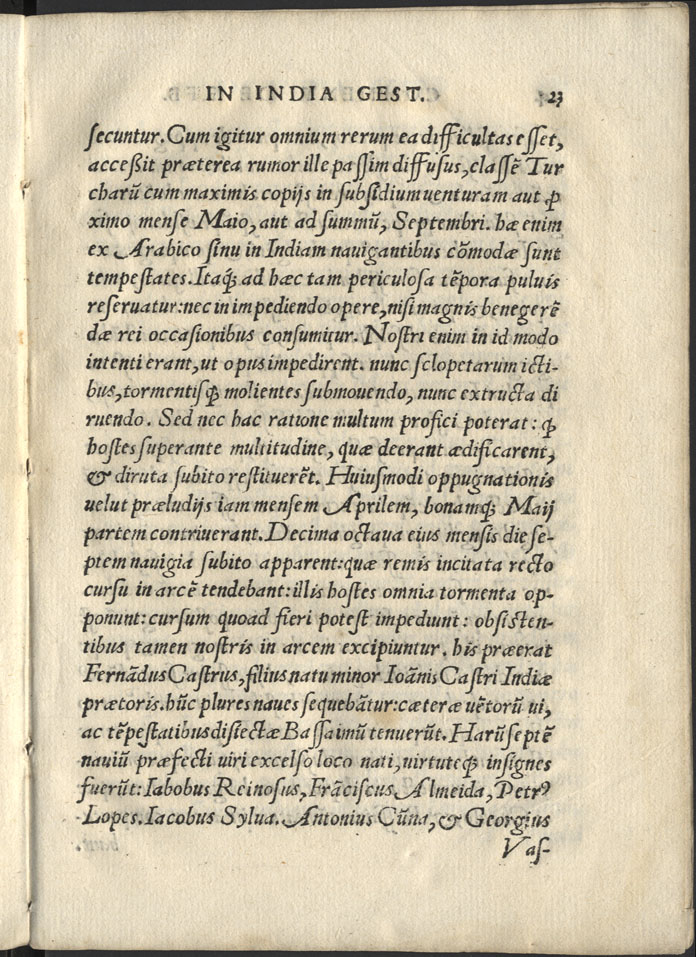 IN INDIA GEST. 23
ſecuntur. Cum igitur omnium rerum ea difficultas eſſet,
acceßit præterea rumor ille paſſim diffuſus, claſſẽ Tur
charũ cum maximis copijs in ſubſidium uenturam aut ꝓ
ximo menſe Maio, aut ad ſummũ, Septembri. hæ enim
ex Arabico ſinu in Indiam nauigantibus cõmodæ ſunt
tempeſtates. Itaq́ʒ ad hæc tam periculoſa tẽpora puluis
reſeruatur: nec in impediendo opere, niſi magnis bene gerẽ
dæ rei occaſionibus conſumitur. Noſtri enim in id modo
intenti erant, ut opus impedirent. nunc ſclopetarum icti-
bus, tormentisq́ʒ molientes ſubmouendo, nunc extructa di
ruendo. Sed nec hac ratione multum profici poterat: ꝙ
hoſtes ſuperante multitudine, quæ deerant ædificarent,
& diruta ſubito reſtituerẽt. Huiuſmodi oppugnationis
uelut præludijs iam menſem Aprilem, bonamq́ʒ Maij
partem contriuerant. Decima octaua eius menſis die ſe-
ptem nauigia ſubito apparent: quæ remis incitata recto
curſu in arcẽ tendebant: illis hoſtes omnia tormenta op-
ponunt: curſum quoad fieri poteſt impediunt: obſiſten-
tibus tamen noſtris in arcem excipiuntur. his præerat
Fernãdus Caſtrus, filius natu minor Ioãnis Caſtri Indiæ
prætoris. hũc plures naues ſequebãtur: cæteræ uẽtorũ ui,
ac tẽpeſtatibus diſiectæ Baſſaimũ tenuerũt. Harũ ſeptẽ
nauiũ præfecti uiri excelſo loco nati, uirtuteq́ʒ inſignes
fuerũt: Iabobus Reinoſus, Frãciſcus Almeida, Petrꝰ
Lopes. Iacobus Sylua. Antonius Cũna, & Georgius
Vaſ-